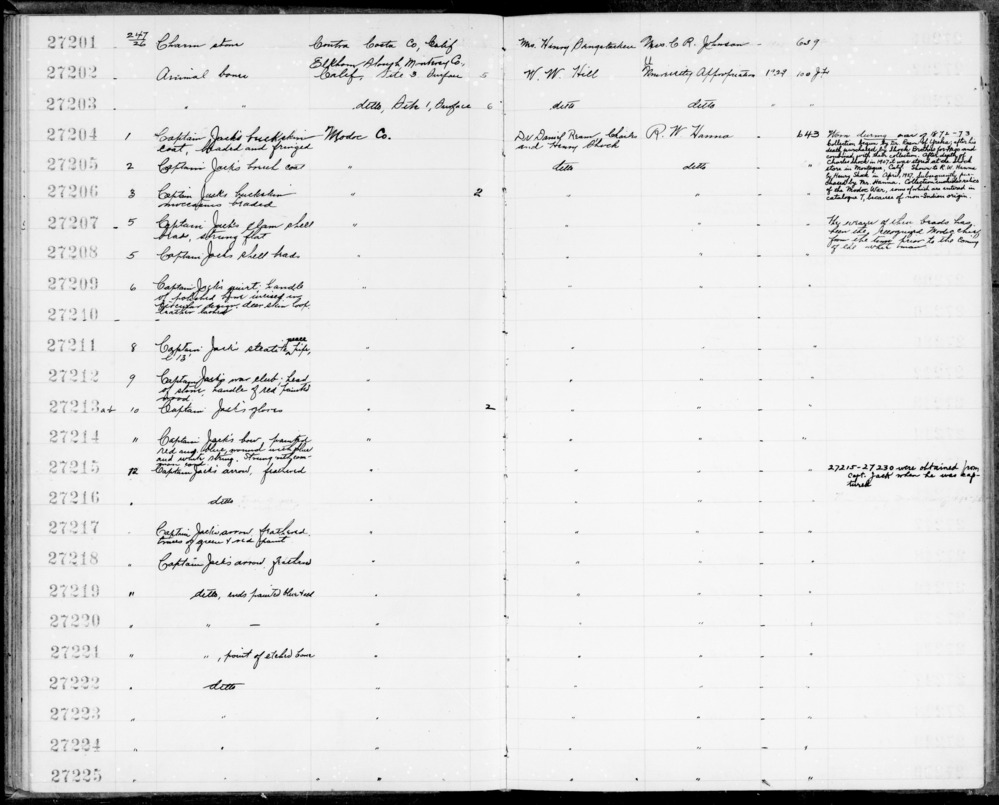 27201 247/26 Charm stone Contra Costa Co, Calif Mrs. Henry Mrs. C. R. Johnson - 639
27202 . Animal bones Elkhorn Slough Monterey Co, Calif, Site 3 Surface 5 W. W. Hill University Appropriation 1929 100
27203 . " " ditto, Site 1, Surface 6 ditto ditto " "
27204 1 Captain Jack's buckskin coat, beaded and fringed Modoc Co. Dr Daniel Ream, Charles and Henry Shock R. W. Hanna - 643
Worn during war of 1872-73
Collection begun by Dr. Ream of Yreka; after his
death purchased by Shock Brothers for Hanna and
combined with their collection. After death of
Charles Shock in 1907 it was stored at the Shock
store in Montague, Calif. Shown to R. W. Hanna
by Henry Shock in April, 1927. Subsequently pur-
chased by Mr. Hanna. Collection includes relics
of the Modoc War, some of which are entered in
catalogue 7, because of non-Indian origin.
27205 2 Captain Jack's coat " ditto ditto - "
27206 3 Captain Jack's buckskin moccasins beaded " 2 " " - "
27207 - 5 Captain Jack's clam shell beads, strung flat " " " - "
The wearer of these beads has
been the recognized Modoc chief
from the prior to the coming
of the white man
27208 5 Captain Jack's shell beads " " " - "
27209 6 Captain Jack's quirt; handle of polished bone incised in circular design; deer skin loop. leather lashes " " " - "
27210 - -
27211 8 Captain Jack's steatite peace pipe, L 13" " " " - "
27212 9 Captain Jack's war club: head of stone, handle of red painted wood " " " - "
27213 a+ 10 Captain Jack's gloves " 2 " " - "
27214 11 Captain Jack's bow, painted red and blue, wound with blue and white string. Strung with common cord " " " - "
27215 12 Captain Jack's arrow, feathered " " " - "
27215-27230 were obtained from
Capt. Jack when he was cap-
tured
27216 " ditto " " " - "
27217 . Captain Jack's arrow feathered. traces of green & red paint " " " - "
27218 " Captain Jack's arrow, feathered " " " - "
27219 " ditto, ends painted blue & red " " " - "
27220 " " — " " " - "
27221 " ", point of etched bone " " " - "
27222 " ditto " " " - "
27223 " " " " " - "
27224 " " " " " - "
27225 " " " " " - "